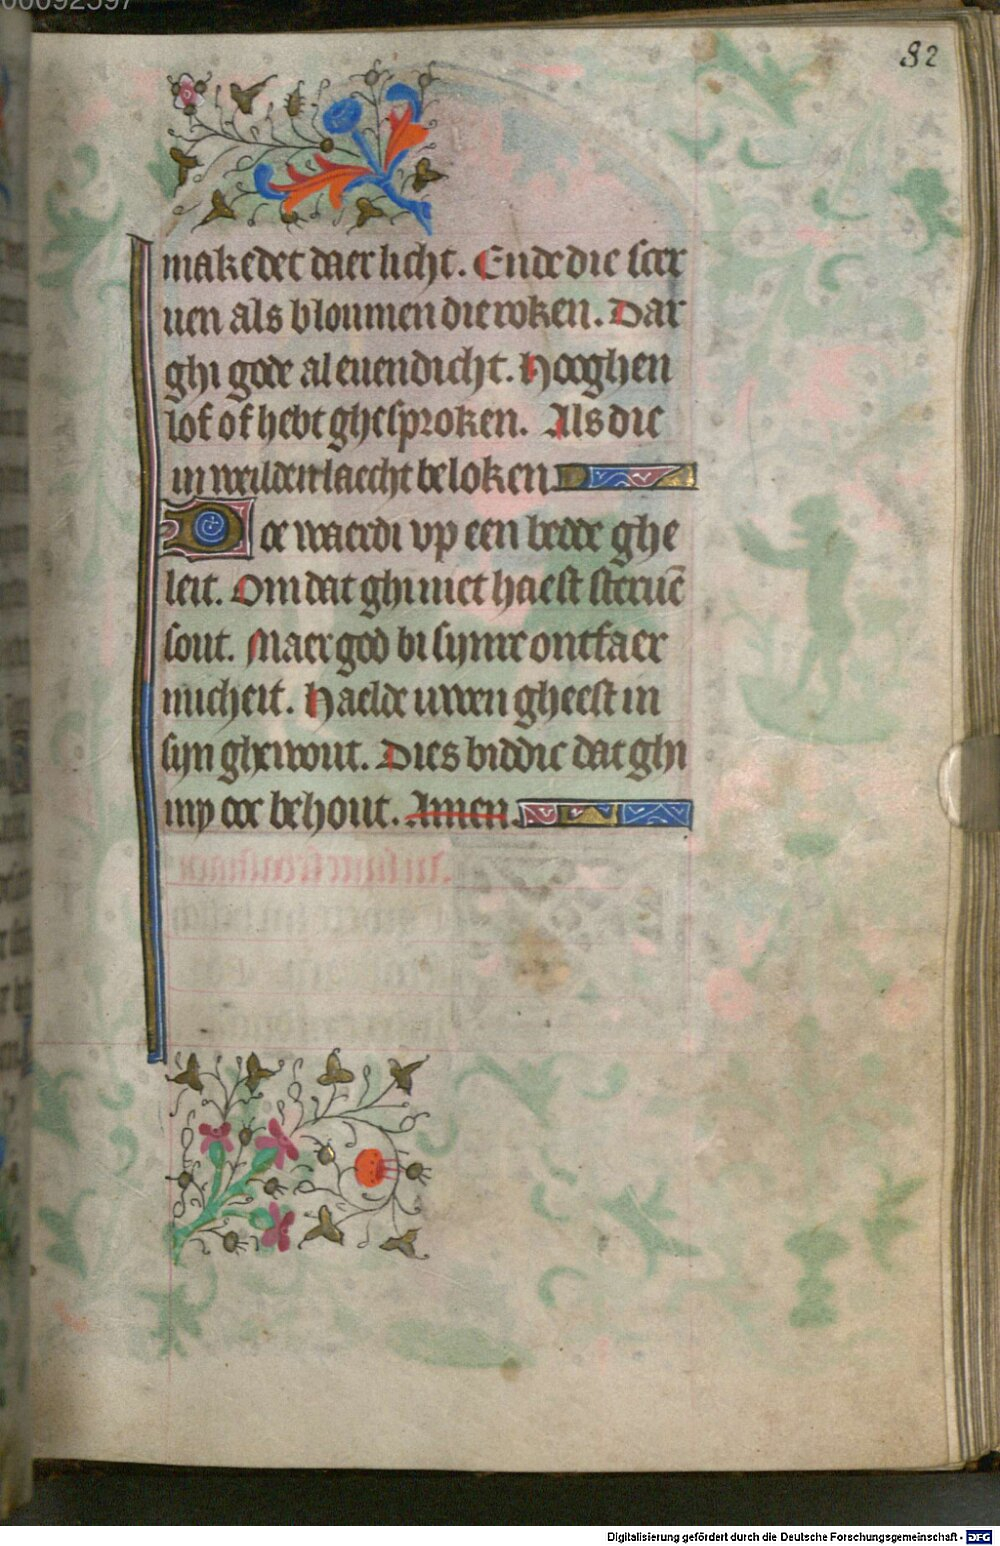 82
maket det daer licht. Ende die ster
uen als bloumen die roken. Dar
ghi gode al euen dicht. Hooghen
lof of hebt ghesproken. Als die
in weilden laecht beloken
Doe waerdi vp een bedde ghe
leit. Om dat ghi niet haest steruē
sout. Maer god bi sijnre ontfaer
micheit. Haelde uwen gheest in
sijn ghewout. Dies biddic dat ghi
my ooc behout. Amen
Digitalisierung gefördert durch die Deutsche Forschungsgemeinschaft - DFG